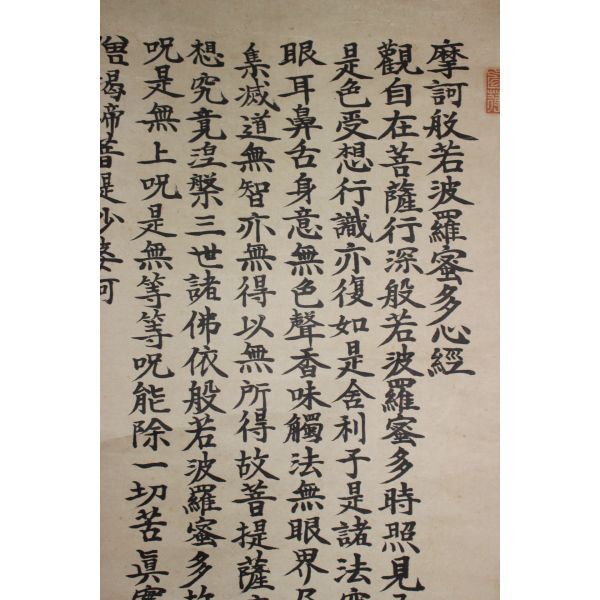 摩訶般若波羅蜜多心經
觀自在菩薩行深般若波羅蜜多時照見
是色受想行識亦復如是舍利子是諸法空
眼耳鼻舌身意無色聲香味觸法無眼界乃
集滅道無智亦無得以無所得故菩提薩
想究竟涅槃三世諸佛依般若波羅蜜多故
呪是無上呪是無等等呪能除一切苦真實
僧揭帝菩提娑婆訶